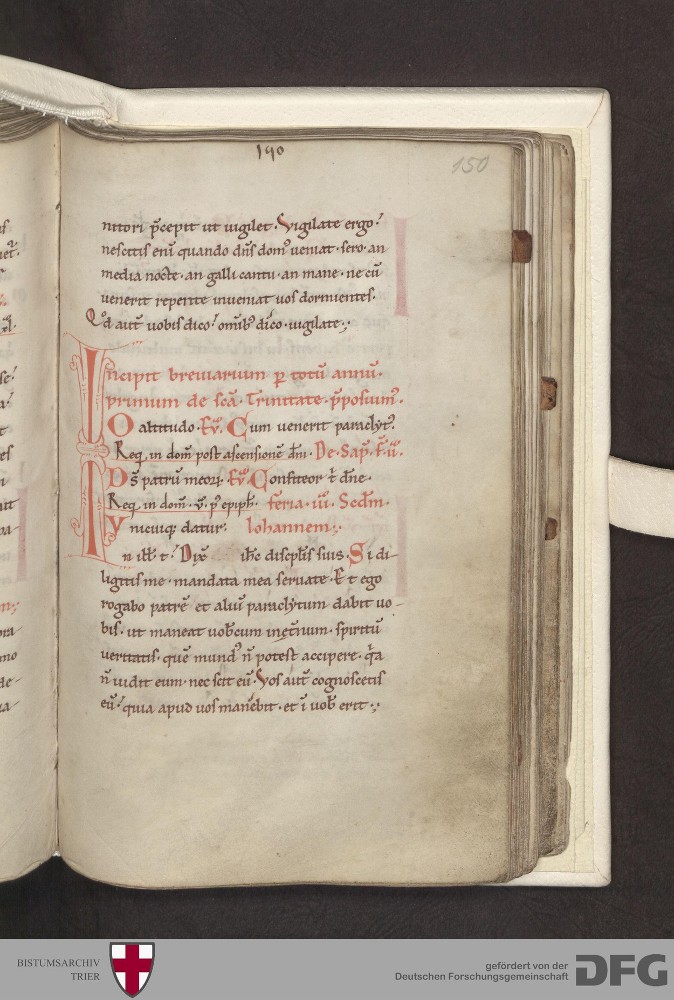 190
150
nitori p̄cepit ut uigilet. Vigilate ergo.
nescitis eni̅ quando dn̅s dom᷒ ueniat. sero. an
media nocte. an galli cantu. an mane. ne cu̅
uenerit repente inueniat uos dormientes.
Qd aut̅ uobis dico. omib᷒ dico. uigilate.
Incipit breuiarium p totu̅ annu̅.
primum de sc̅a. Trinitate. p̄posium᷒.
O altitudo. Eu̅. Cum uenerit paraclyt᷒.
Req in dom̅ post ascensione̅ dn̅i. De. Sap̅.
Ds̅ patru̅ meor. Eu̅. Confiteor t̅ dn̅e.
Req in dom̅. v. p᷒ epiph̅. feria. iii. Scdm̅.
Vnicuiq; datur. Iohannem.
In ill̅. t. Dix̅ ihc̅ discipl̅is suis. Si di-
ligitis me. mandata mea seruate. Et ego
rogabo patre̅ et aliu̅ paraclytum dabit uo-
bis. ut maneat uobcum inet̅num. spiritu̅
ueritatis. que̅ mund᷒ n̅ potest accipere. qa
n̅ uidit eum. nec scit eu̅. Vos aut̅ cognoscetis
eu̅. quia apud uos manebit. et i̅ uob̅ erit.
BISTUMSARCHIV
TRIER
gefördert von der
Deutschen Forschungsgemeinschaft
DFG